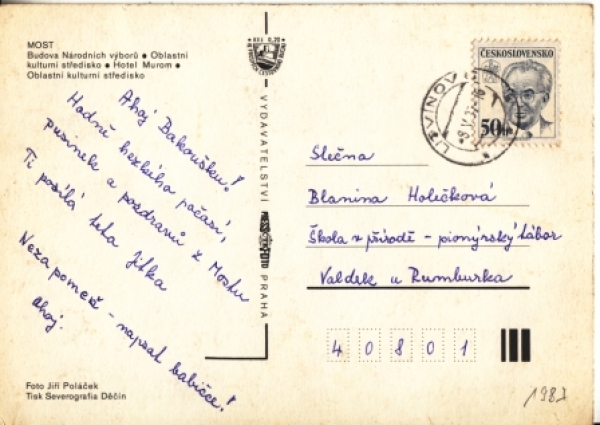 MOST
Budova Národních výborů • Oblastní
kulturní středisko • Hotel Murom •
Oblastní kulturní středisko
Ahoj Bakoušku!
Hodně hezkého počasí,
pusinek a pozdravů z Mostu
Ti posílá teta Jitka
Nezapomeň - napsat babičce!
ahoj.
Foto Jiří Poláček
Tisk Severografia Děčín
VYDAVATELSTVÍ
PRAHA
ČESKOSLOVENSKO
50
LITVÍNOV
Slečna
Blanina Holičková
Škola v přírodě - pionýrský tábor
Valdek u Rumburka
40801
1987